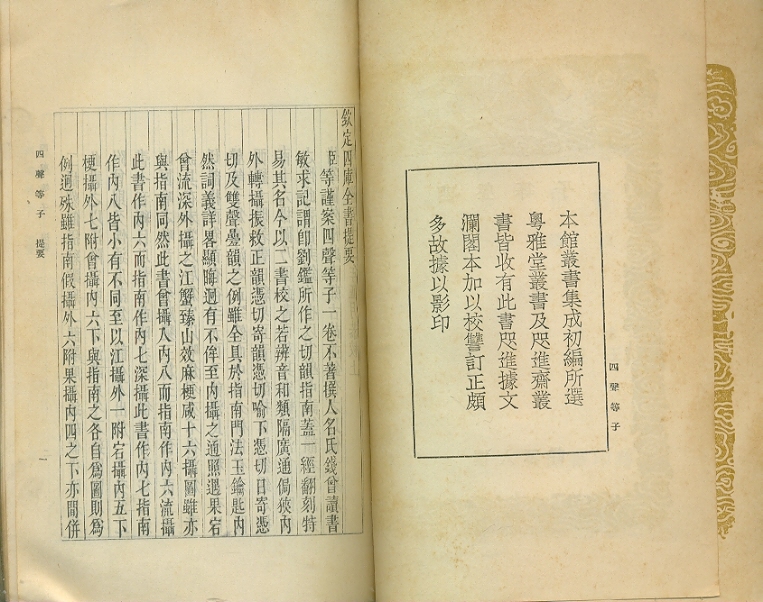 本館叢書集成初編所選
粵雅堂叢書及咫進齋叢
書皆收有此書咫進據文
瀾閣本加以校讐訂正頗
多故據以影印
四聲等子
欽定四庫全書提要
臣等謹案四聲等子一卷不著撰人名氏錢曾讀書
敏求記謂卽劉鑑所作之切韻指南蓋一經翻刻特
易其名今以二書校之若辨音和類隔廣通侷狹內
外轉攝振救正韻憑切寄韻憑切喻下憑切日寄憑
切及雙聲疊韻之例雖全具於指南門法玉鑰匙內
然詞義詳畧顯晦迥有不侔至內攝之通照遇果宕
曾流深外攝之江蟹臻山效麻梗咸十六攝圖雖亦
與指南同然此書曾攝入內八而指南作內六流攝
此書作內六而指南作內七深攝此書作內七指南
作內八皆小有不同至以江攝外一附宕攝內五下
梗攝外七附曾攝內六下與指南之各自爲圖則爲
例迥殊雖指南假攝外六附果攝內四之下亦間併
四聲等子 提要
一